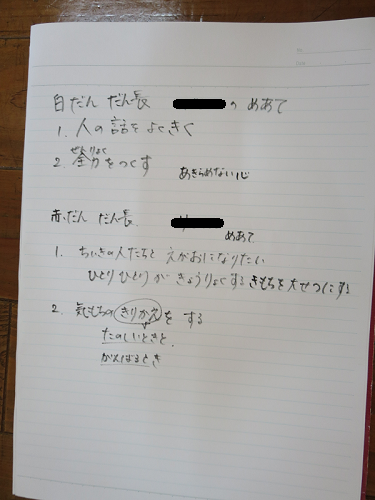 白だん だん長 の めあて
1. 人の話をよくきく
せんりょく
2. 全力をつくす あきらめない心
赤だん だん長
めあて
1. ちいきの人たちと えがおになりたい
ひとりひとりが きょうりょくする きもちを大せつにする
2. 気もちの きりかえを する
たのしいときと
がんばるとき